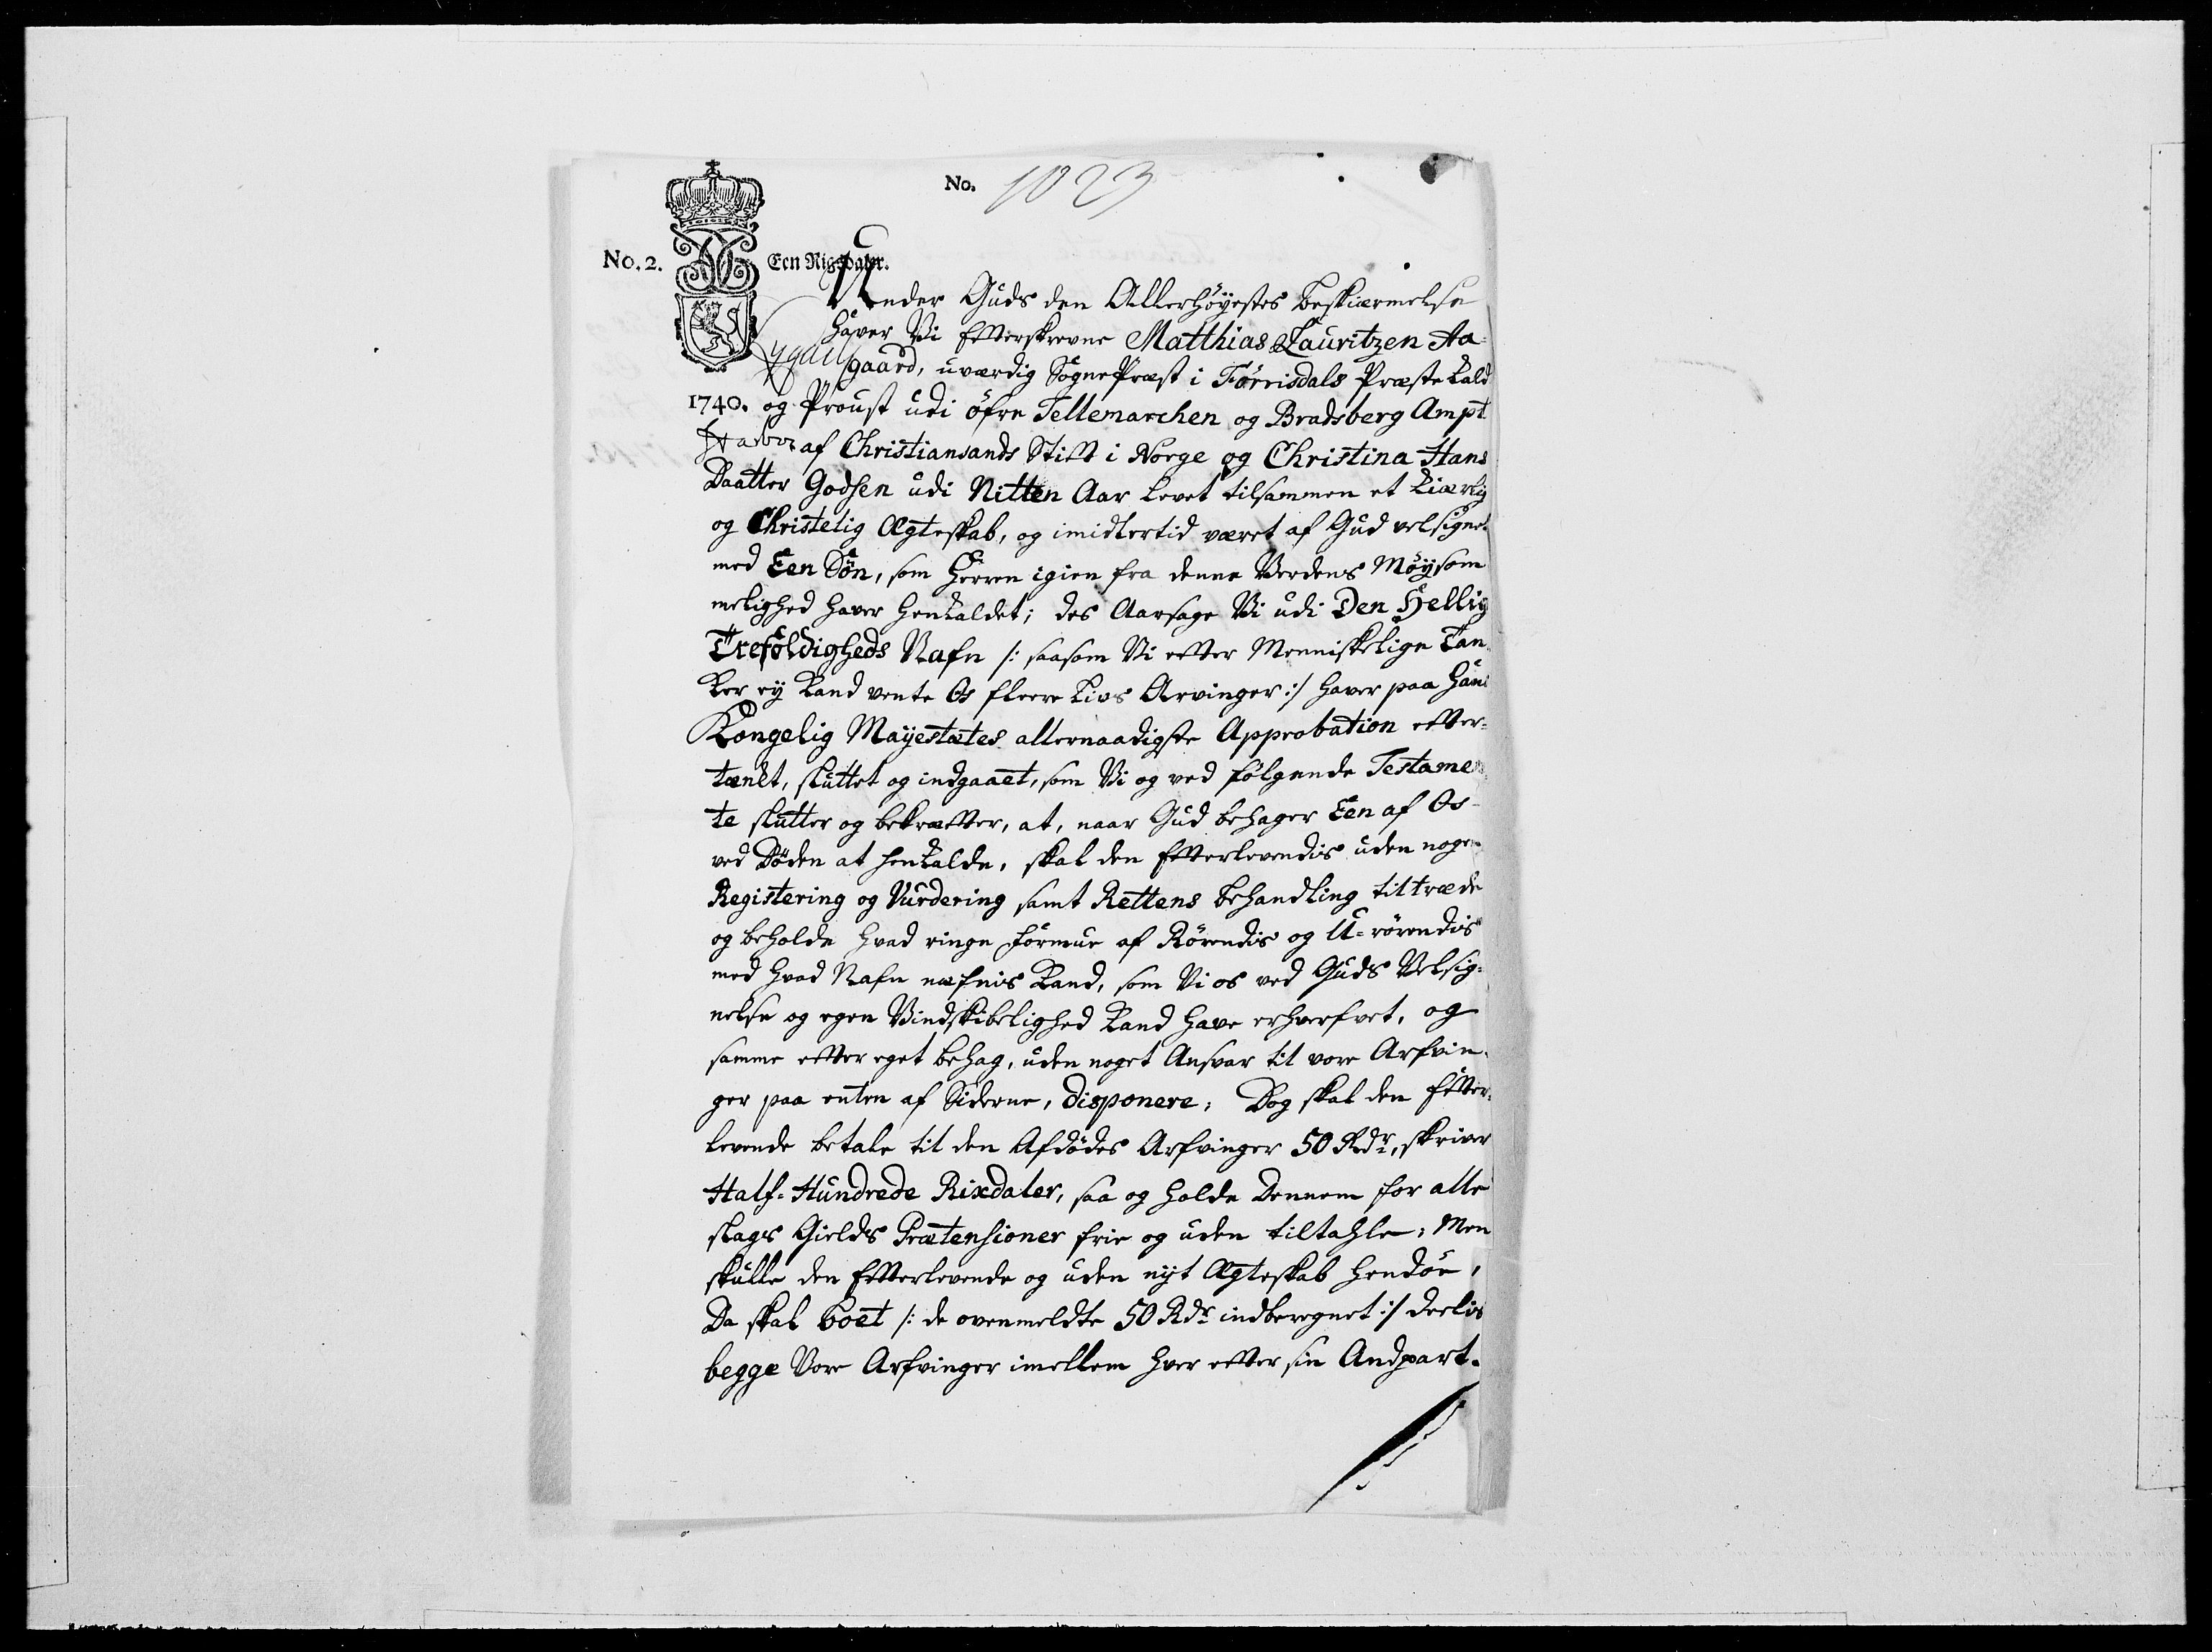 No. 1023
No. 2.
Een Rigsdaler.
Under Guds den Allerhöyestes Beskiærmelse
Haver Vi Efterskrevne Matthias Lauritzen Aa-
gaard, uværdig SognePræst i Förrisdals Præste Kald
1740. og Proust udi öfre Tellemarchen og Bradsberg Ampt
af Christiansands Stift i Norge og Christina Hans
Daatter Godsen udi Nitten Aar levet tilsammen et Kiærlig
og Christelig Ægteskab, og imidlertid været af Gud velsignet
med Een Sön, som Herren igien fra denne Verdens Möysom
melighed haver henkaldet; des Aarsage Vi udi Den Hellig
Trefoldigheds Nafn /: saasom Vi efter Menniskelige Tan
ker ey Kand vente Os fleere Livs Arvinger :/ haver paa Hans
Kongelig Mayestætes allernaadigste Approbation efter-
tænkt, sluttet og indgaaet, som Vi og ved følgende Testamen
te slutter og bekræfter, at, naar Gud behager Een af Os
ved Döden at henkalde, skal den Efterlevendis uden nogen
Registering og Vurdering samt Rettens Behandling tiltræde
og beholde hvad ringe Formue af Rörendis og U-rörendis
med hvad Nafn næfnis Kand, som Vi os ved Guds Velsig-
nelse og egen Vindskibelighed Kand have erhverfvet, og
samme efter eget behag, uden noget Ansvar til vore Arfvin-
ger paa enten af Siderne, disponere; Dog skal den Efter-
levende betale til den Afdödes Arfvinger 50 Rdr, skriver
Half-Hundrede Rixdaler, saa og holde Dennem for alle
slags Gields Prætensioner frie og uden tiltahle; Men
skulle den Efterlevende og uden nyt Ægteskab hendöe,
Da skal Boet /: de ovenmeldte 50 Rdr indberegnet :/ deelis
begge Vore Arfvinger imellem hver efter sin Andpart.